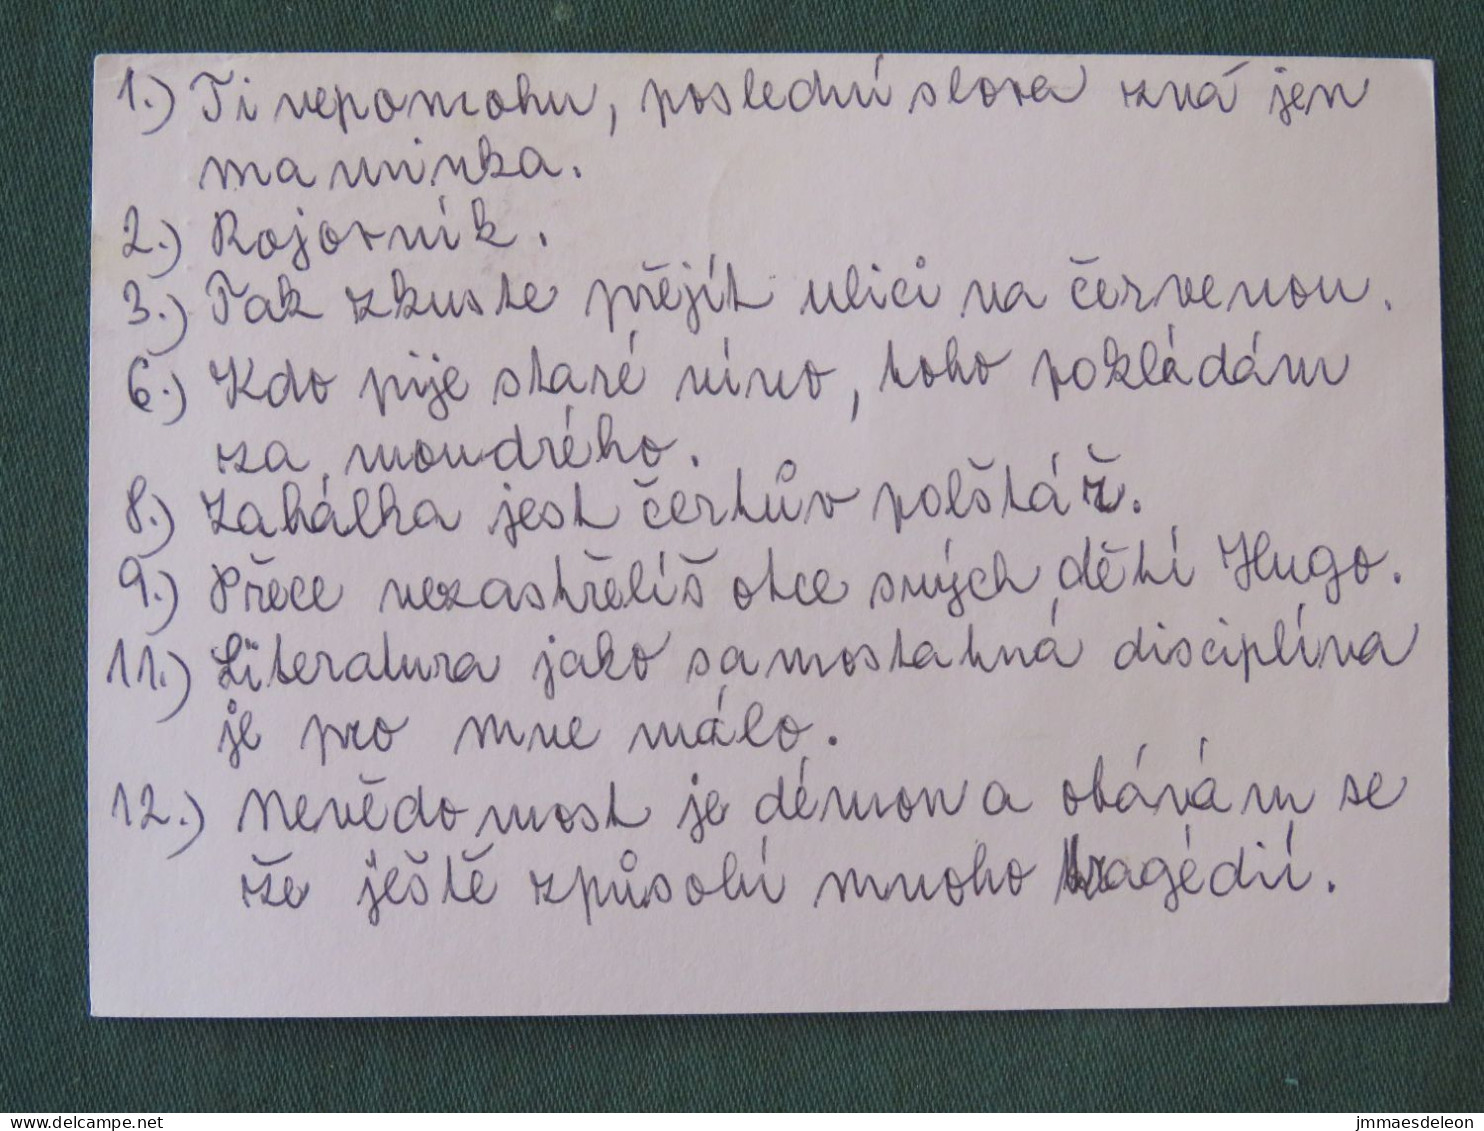 1.) Ti nepomohu, poslední slova zná jen
maminka.
2.) Rojovník.
3.) Tak zkuste přejít ulici na červenou.
6.) Kdo pije staré víno, toho pokládám
za moudrého.
8.) Zahálka jest čertův polštář.
9.) Přece nezastřelíš otce svých dětí Hugo.
11.) Literatura jako samostatná disciplína
je pro mne málo.
12.) Nevědomost je démon a obávám se
že ještě způsobí mnoho tragédií.
delcampe.net
jmmaesdeleon